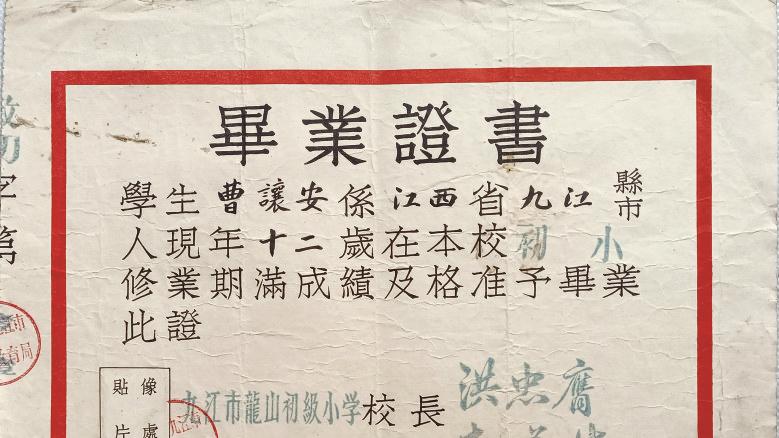 畢業證書
學生曹讓安係江西省九江縣市
人現年十二歲在本校初小
修業期滿成績及格准予畢業
此證
字第
像處
貼片
九江市龍山初級小學校長 洪忠膺